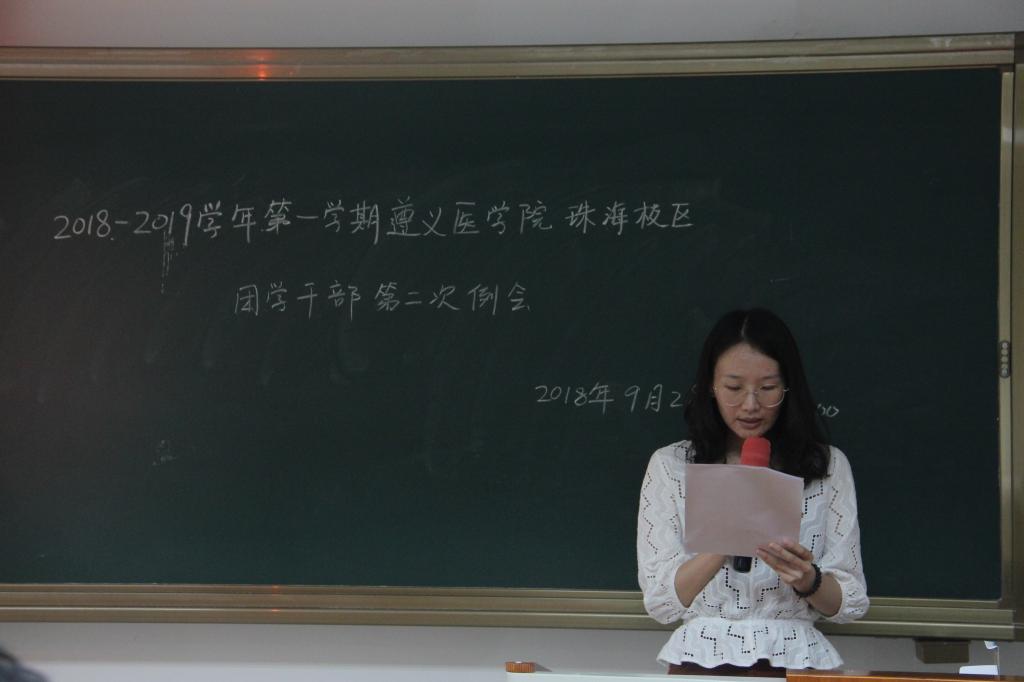 2018-2019学年第一学期遵义医学院珠海校区
团学干部第二次例会
2018年9月2 00